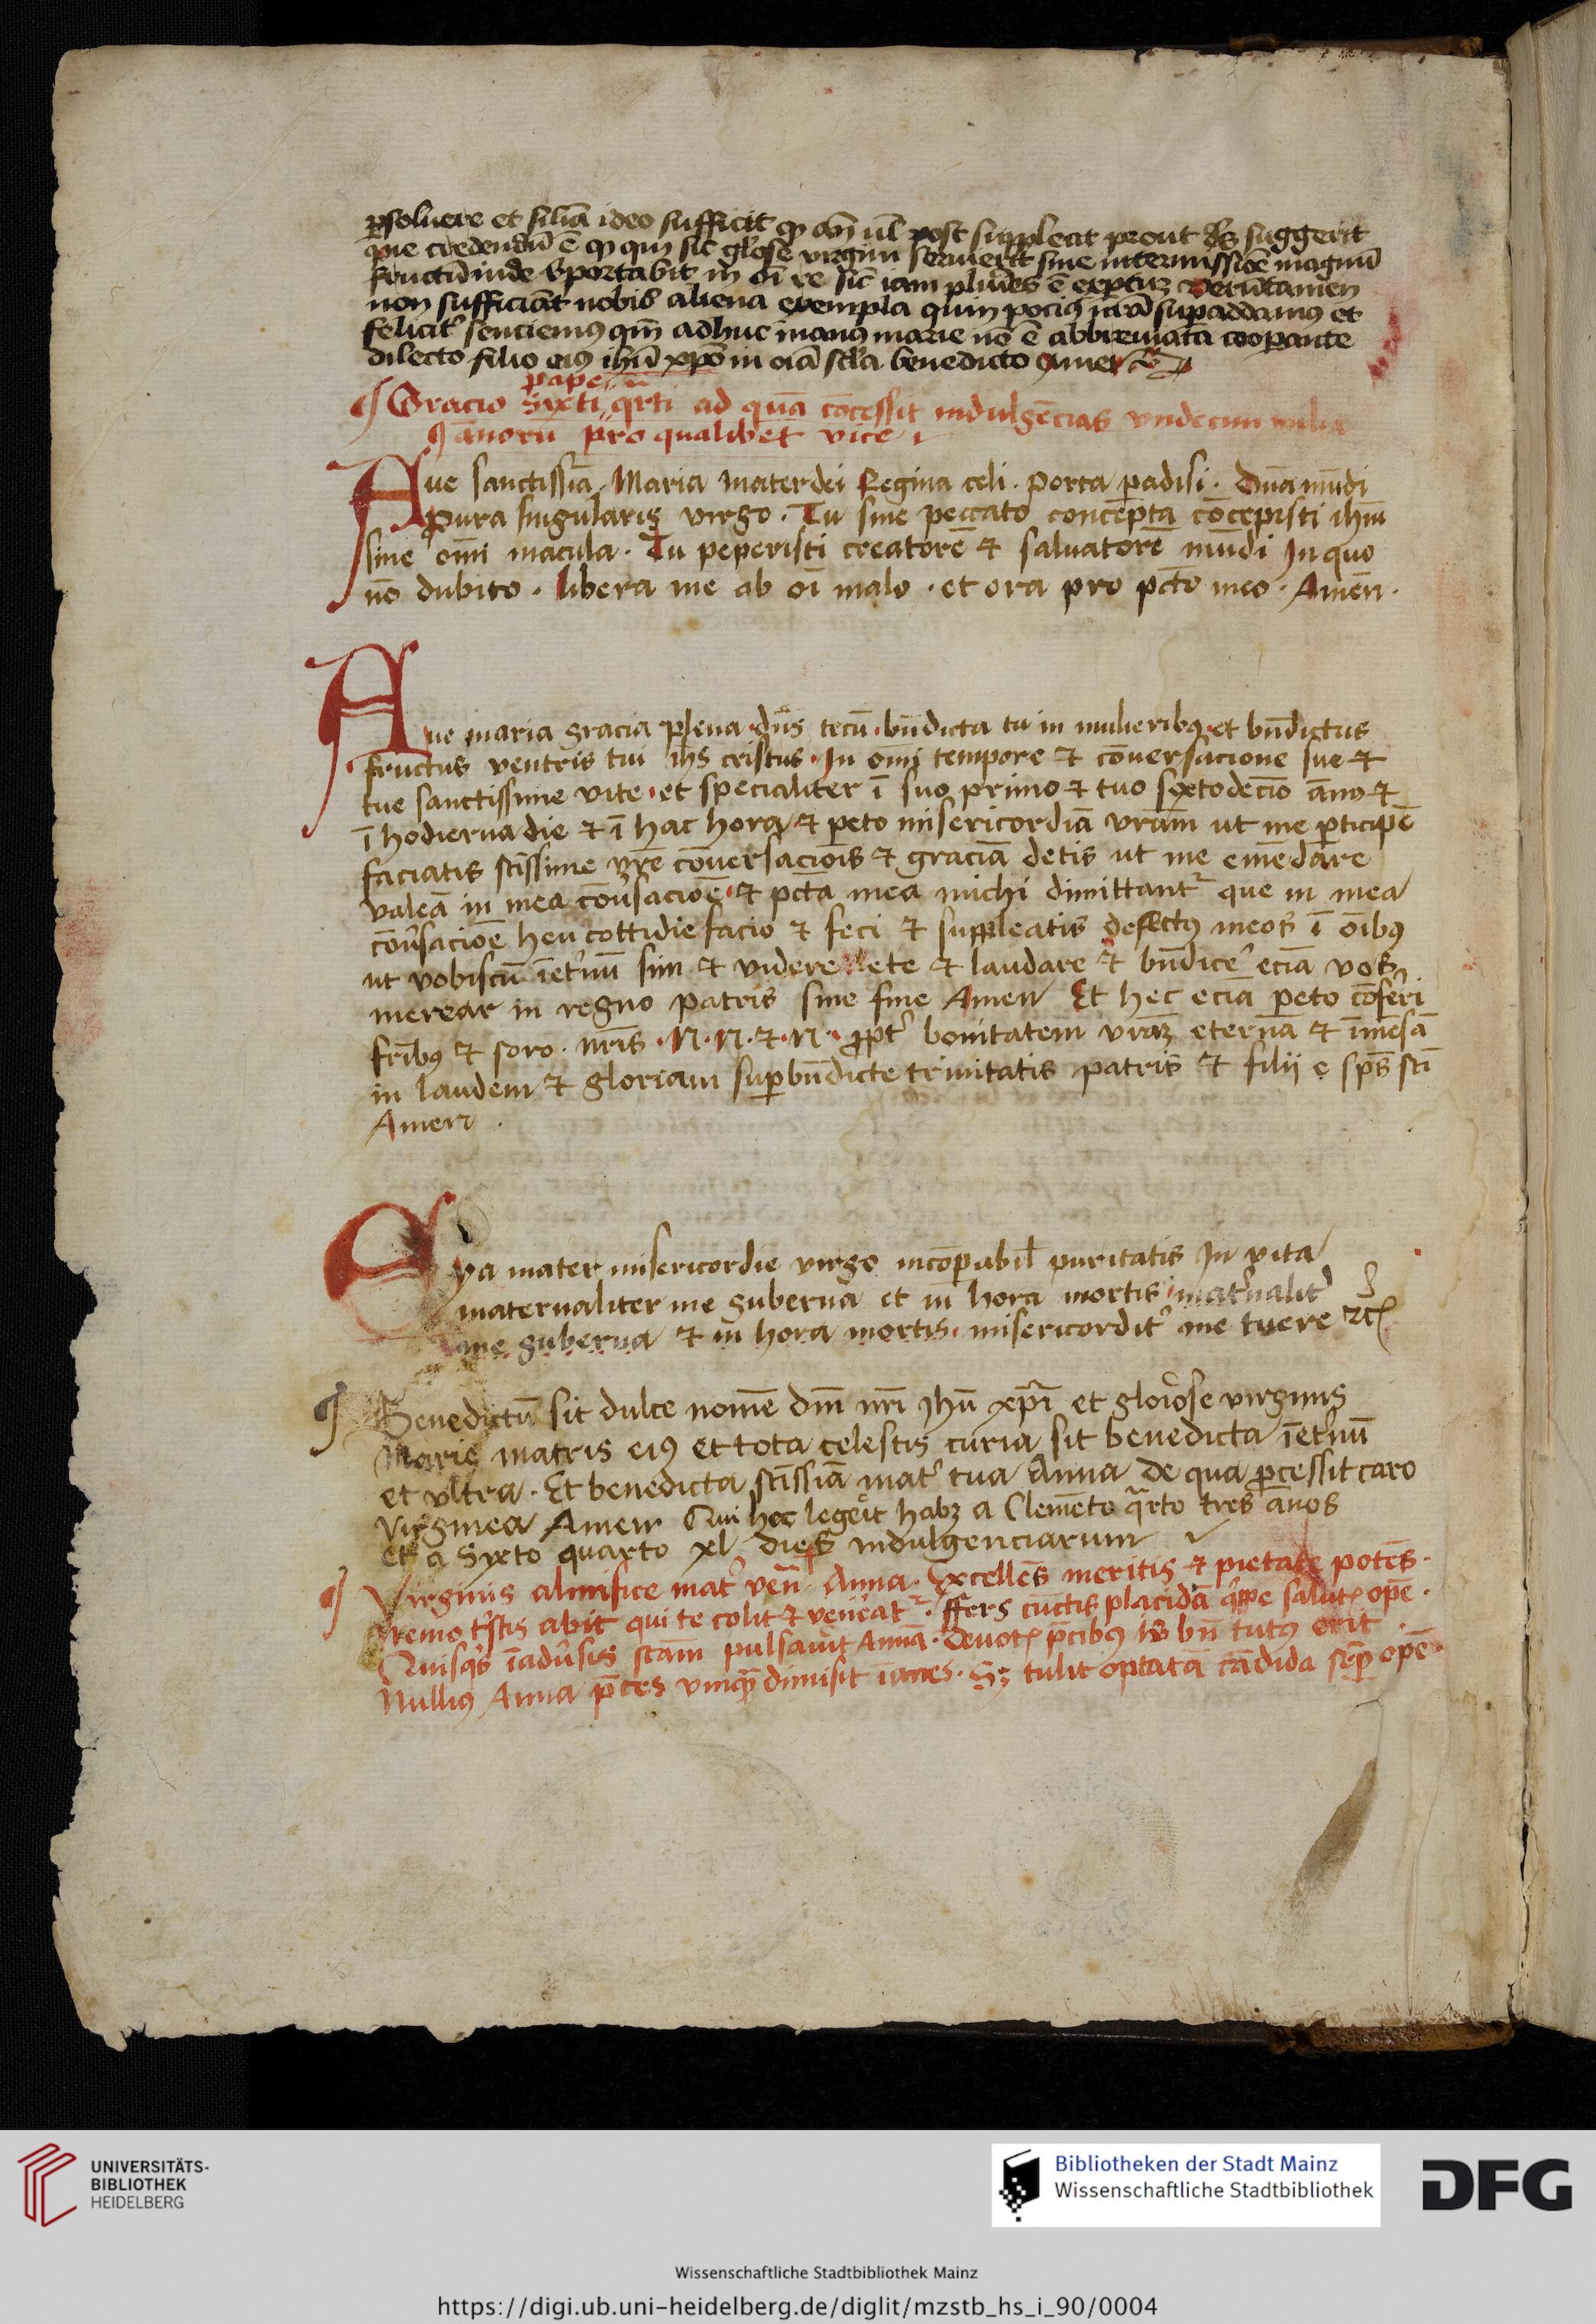 ꝑsoluere et siliā ideo sufficit ꝙ añ ul post suppleat prout ds̄ suggerit
pie credendū ē ꝙ qui sic gl'ose virgini seruierit sine intermissiōe magnū
fructū inde reportabit in oī re sic̄ iam pluries ē expertuȝ verūtamen
non sufficiāt nobis aliena exempla quin pociꝰ suꝑaddamus et
felicit' senciemꝰ qm̄ adhuc manꝰ marie nō ē abbreuiata cooꝑante
dilecto filio eiꝰ ihū xpō in oīa sc̄la benedicto Amen
pape
¶ Oracio Sixti qrti ad quā cōcessit indulgēcias vndecim milia
ānorū pro qualibet vice
Aue sanctissīa Maria mater dei Regina celi . Porta ꝑadisi . Dūa mūdi
Pura singularis virgo . Tu sine peccato concepta cōcepisti ihm̄
sine om̄i macula . Tu peperisti creatorē et saluatorē mūdi In quo
nō dubito . libera me ab oī malo . et ora pro pctō meo . Amen .
Aue maria gracia plena dn̄s tecū bn̄dicta tu in mulieribꝫ et bn̄dictus
fructus ventris tui ihs cristus In om̄i tempore et cōuersacione sue et
tue sanctissime vite et specialiter ī suo primo et tuo sextodecīo āno et
ī hodierna die et ī hac hora et peto misericordiā vram̄ ut me ꝑticipē
faciatis sc̄issime vrē cōuersaciōis et graciā detis ut me emēdare
valeā in mea cōuersaciōe et pctā mea michi dimittantr que in mea
cōuersaciōe heu cottidie facio et feci et suppleatis defectꝰ meos ī oībꝰ
ut vobiscū īet'nū sim et videre lete et laudare et bn̄dice' eciā vos
merear in regno patris sine fine Amen Et hec ecia peto cōferi
frībꝰ et soro . nrīs . N . N . et . N . ꝓpt' bonitatem vraȝ eternā et īmēsā
in laudem et gloriam suꝑbn̄dicte trinitatis patris et filij e sp̄s sc̄i
Amen .
Eya mater misericordie virgo incōꝑabil' puritatis In vita
maternaliter me guberna et in hora mortis mat'nalit'
me guberna et in hora mortis misericordit' me tuere etc
¶ Benedictū sit dulce nomē dm̄ nrī Jhū xp̄i et gloriose virginis
Marie matris eiꝰ et tota celestis curia sit benedicta īet'nū
et vltra . Et benedicta sc̄issīa mat' tua Anna de qua ꝓcessit caro
virginea Amen Qui hec legerit habȝ a Clemēto qrto tres ānos
et a Sixto quarto xl dies indulgenciarum
¶ Virginis almifice mat' ven̄ Anna . Excellēs meritis et pietate potēs .
Nemo t'stis abit qui te colit et ven'eatr . ffers cūctis placidā salut' opē .
Quisqs īadu'sis sctām pulsauit Annā . Deuot' p̄cibꝰ bn̄ tutꝰ erit
Nulliꝰ Anna p̄ces vnꝗ̄ dimisit īanes . Sȝ tulit optatā cādida sēꝑ opē
UNIVERSITÄTS-
BIBLIOTHEK
HEIDELBERG
Bibliotheken der Stadt Mainz
Wissenschaftliche Stadtbibliothek
DFG
Wissenschaftliche Stadtbibliothek Mainz
https://digi.ub.uni-heidelberg.de/diglit/mzstb_hs_i_90/0004